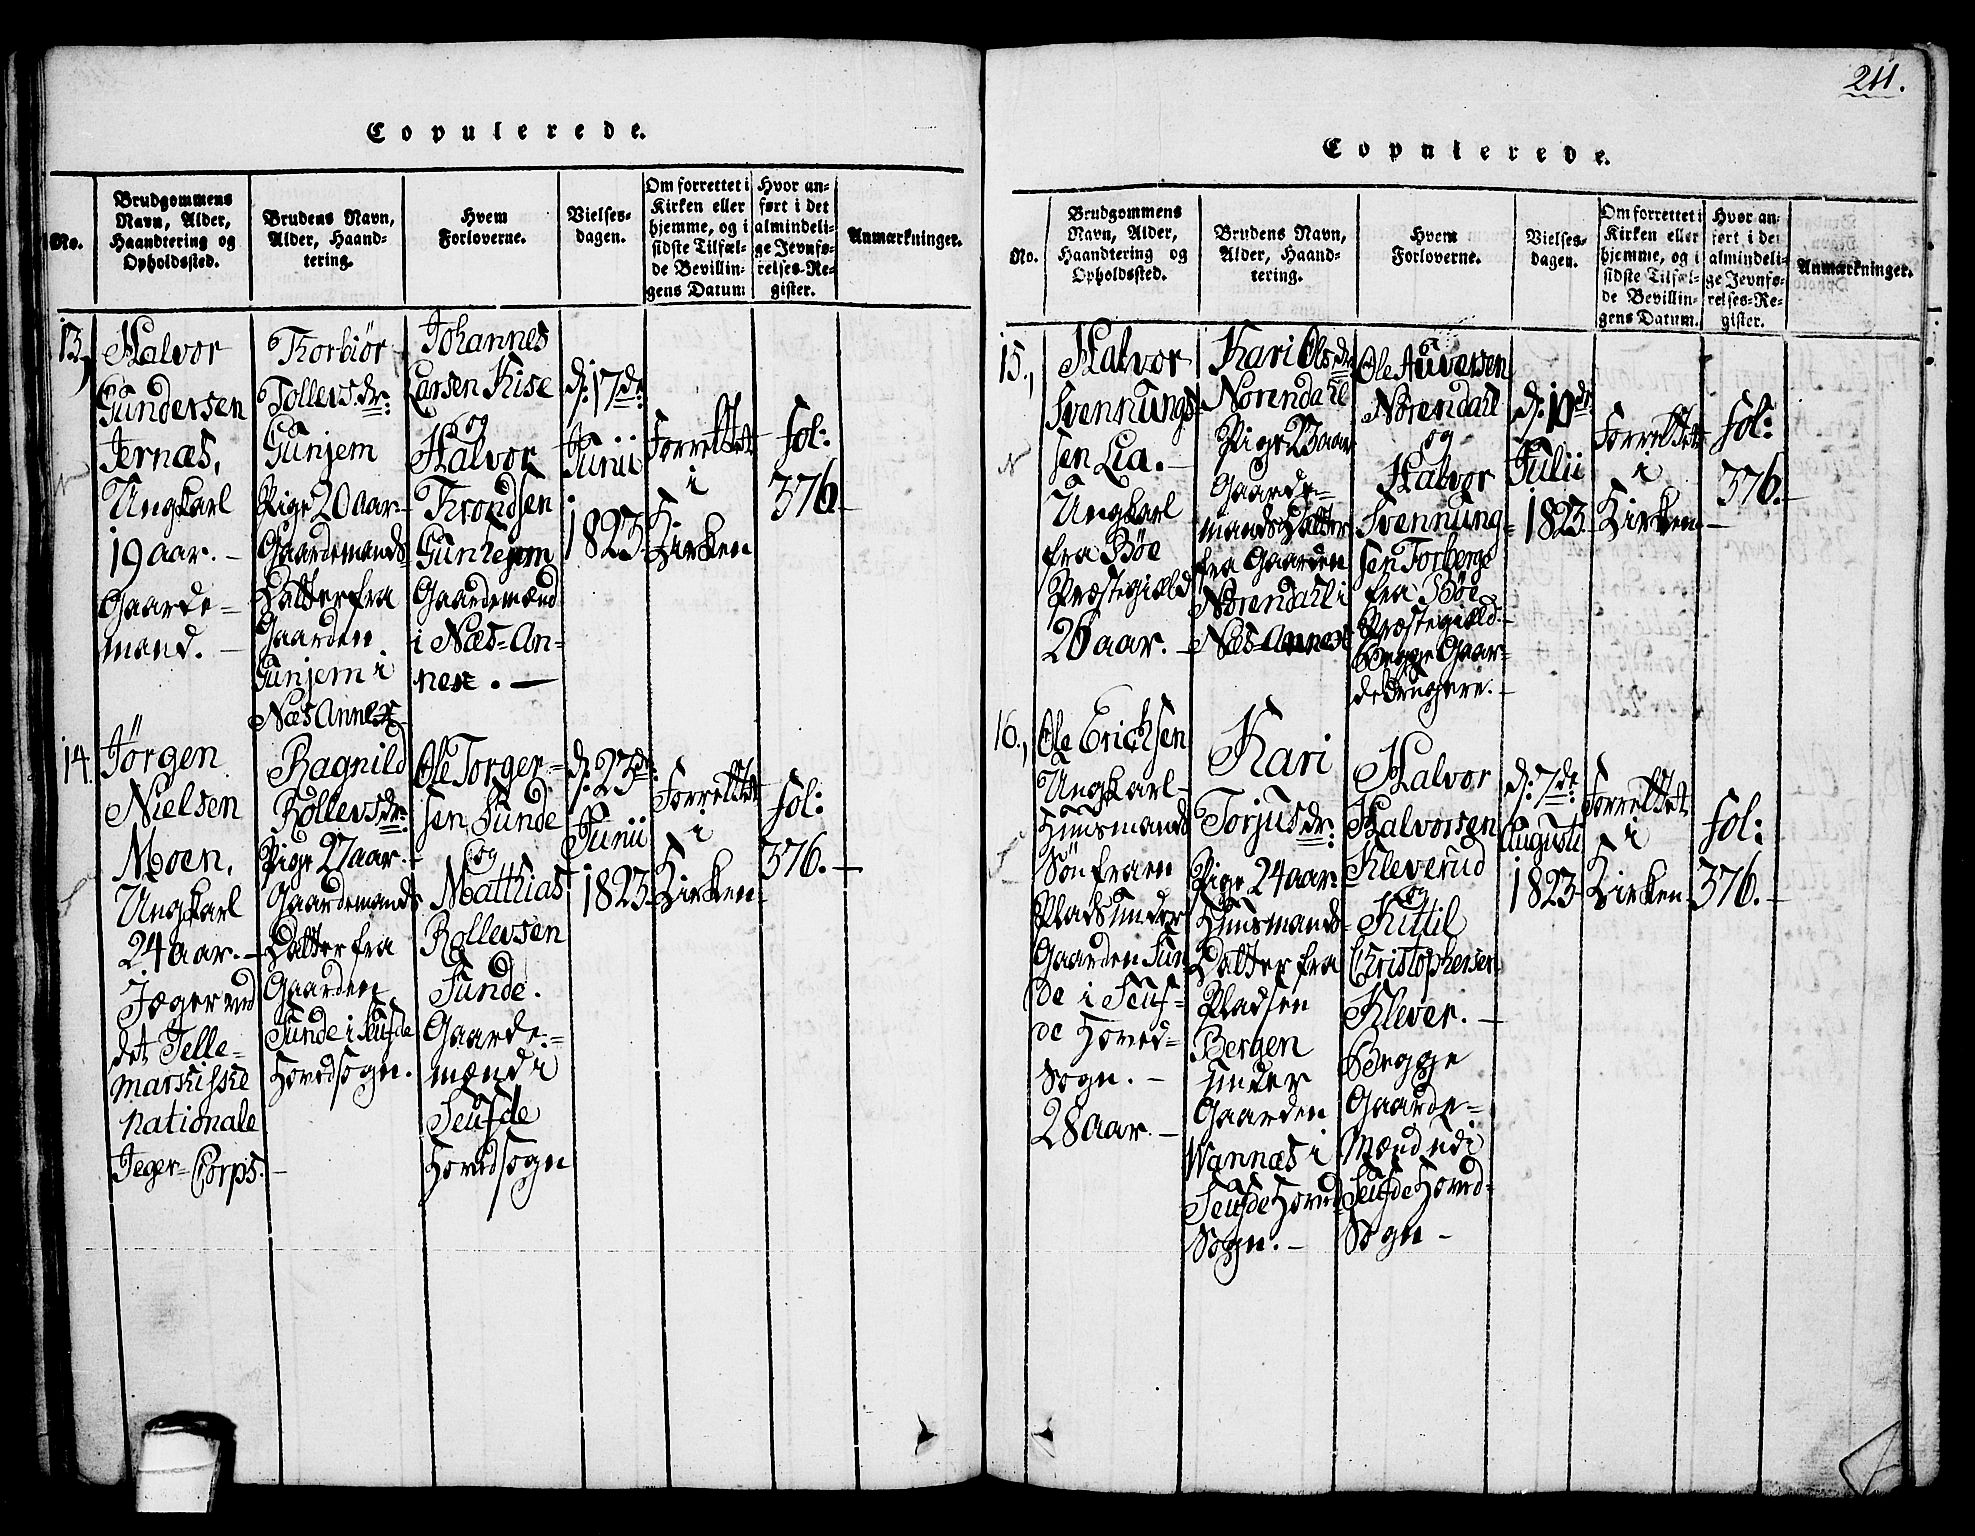 Copulerede.
No.
Brudgommens
Navn, Alder,
Haandtering og
Opholdssted.
Brudens Navn,
Alder, Haand-
tering.
Hvem
Forloverne.
Vielses-
dagen.
Om forrettet i
Kirken eller
hjemme, og i
sidste Tilfæl-
de Bevillin-
gens Datum.
Hvor an-
ført i det
almindeli-
ge Jevnfø-
relses-Re-
gister.
Anmærkninger.
13,
Halvor
Gundersen
Jernæs,
Ungkarl
19 aar. -
Gaarde-
mand. -
Thorbiør
Tollevs.dr:
Gunjem
Pige 20 aar-
Gaardemands
Datter fra
Gaarden
Gunjem i
Næs Annex
Johannes
Larsen Kise
og
Halvor
Trondsen
Gunhejem
Gaardemænd
i Næs-An-
nex. -
d: 17de
Junii
1823-
Forrettet
i
Kirken
fol:
376.-
14.
Jørgen
Nielsen
Moen,
Ungkarl
24 aar. -
Jæger ved
det Telle-
markiske
nationale
Jeger-Corps. -
Ragnild
Rollevsdr:
Pige 27 aar.-
Gaardemands
Datter fra
Gaarden
Sunde i Seufde
Hovedsogn.
Ole Torger-
sen Sunde
og
Matthias
Rollevsen
Sunde.
Gaarde-
mænd i
Seufde
Hovedsogn
d: 23de:
Junii
1823-
Forrettet
i
Kirken-
fol:
376.-
211.
Copulerede.
No.
Brudgommens
Navn, Alder,
Haandtering og
Opholdssted.
Brudens Navn,
Alder, Haand-
tering.
Hvem
Forloverne.
Vielses-
dagen.
Om forrettet i
Kirken eller
hjemme, og i
sidste Tilfæl-
de Bevillin-
gens Datum.
Hvor an-
ført i det
almindeli-
ge Jevnfø-
relses-Re-
gister.
Anmærkninger.
15.,
Halvor
Svennungs-
sen Lia. -
Ungkarl
fra Bøe
Præstegiæld
26 aar. -
Kari Olsdr
Nørendahl
Pige 23 aar
Gaarde-
mands Datter
fra Gaarden
Nørendahl i
Næs-Annex
Ole Auversen
Nørendahl
og
Halvor
Svennung-
sen Torberge
fra Bøe
Præstegiæld-
Begge Gaar-
debrugere. -
d: 10de
Julii
1823-
Forrettet
i
Kirken-
fol:
376.-
16.,
Ole Erichsen
Ungkarl-
Huusmands
Søn fra en
Plads under
Gaarden Sun
de i Seuf-
de Hoved-
Sogn. -
28 aar. -
Kari
Torjusdr:
Pige 24 aar-
Huusmands-
Datter fra
Pladsen
Bergen
under
Gaarden
Wannæs i
Seufde Hoved
Sogn. -
Halvor
Halvorsen
Kleverud
og
Kittil
Christophersen
Klever. -
Begge
Gaarde-
Mænd udi
Seufde Hoved-
Sogn -
d: 7de:
Augusti
1823-
Forrettet
i
Kirken
fol:
376.-